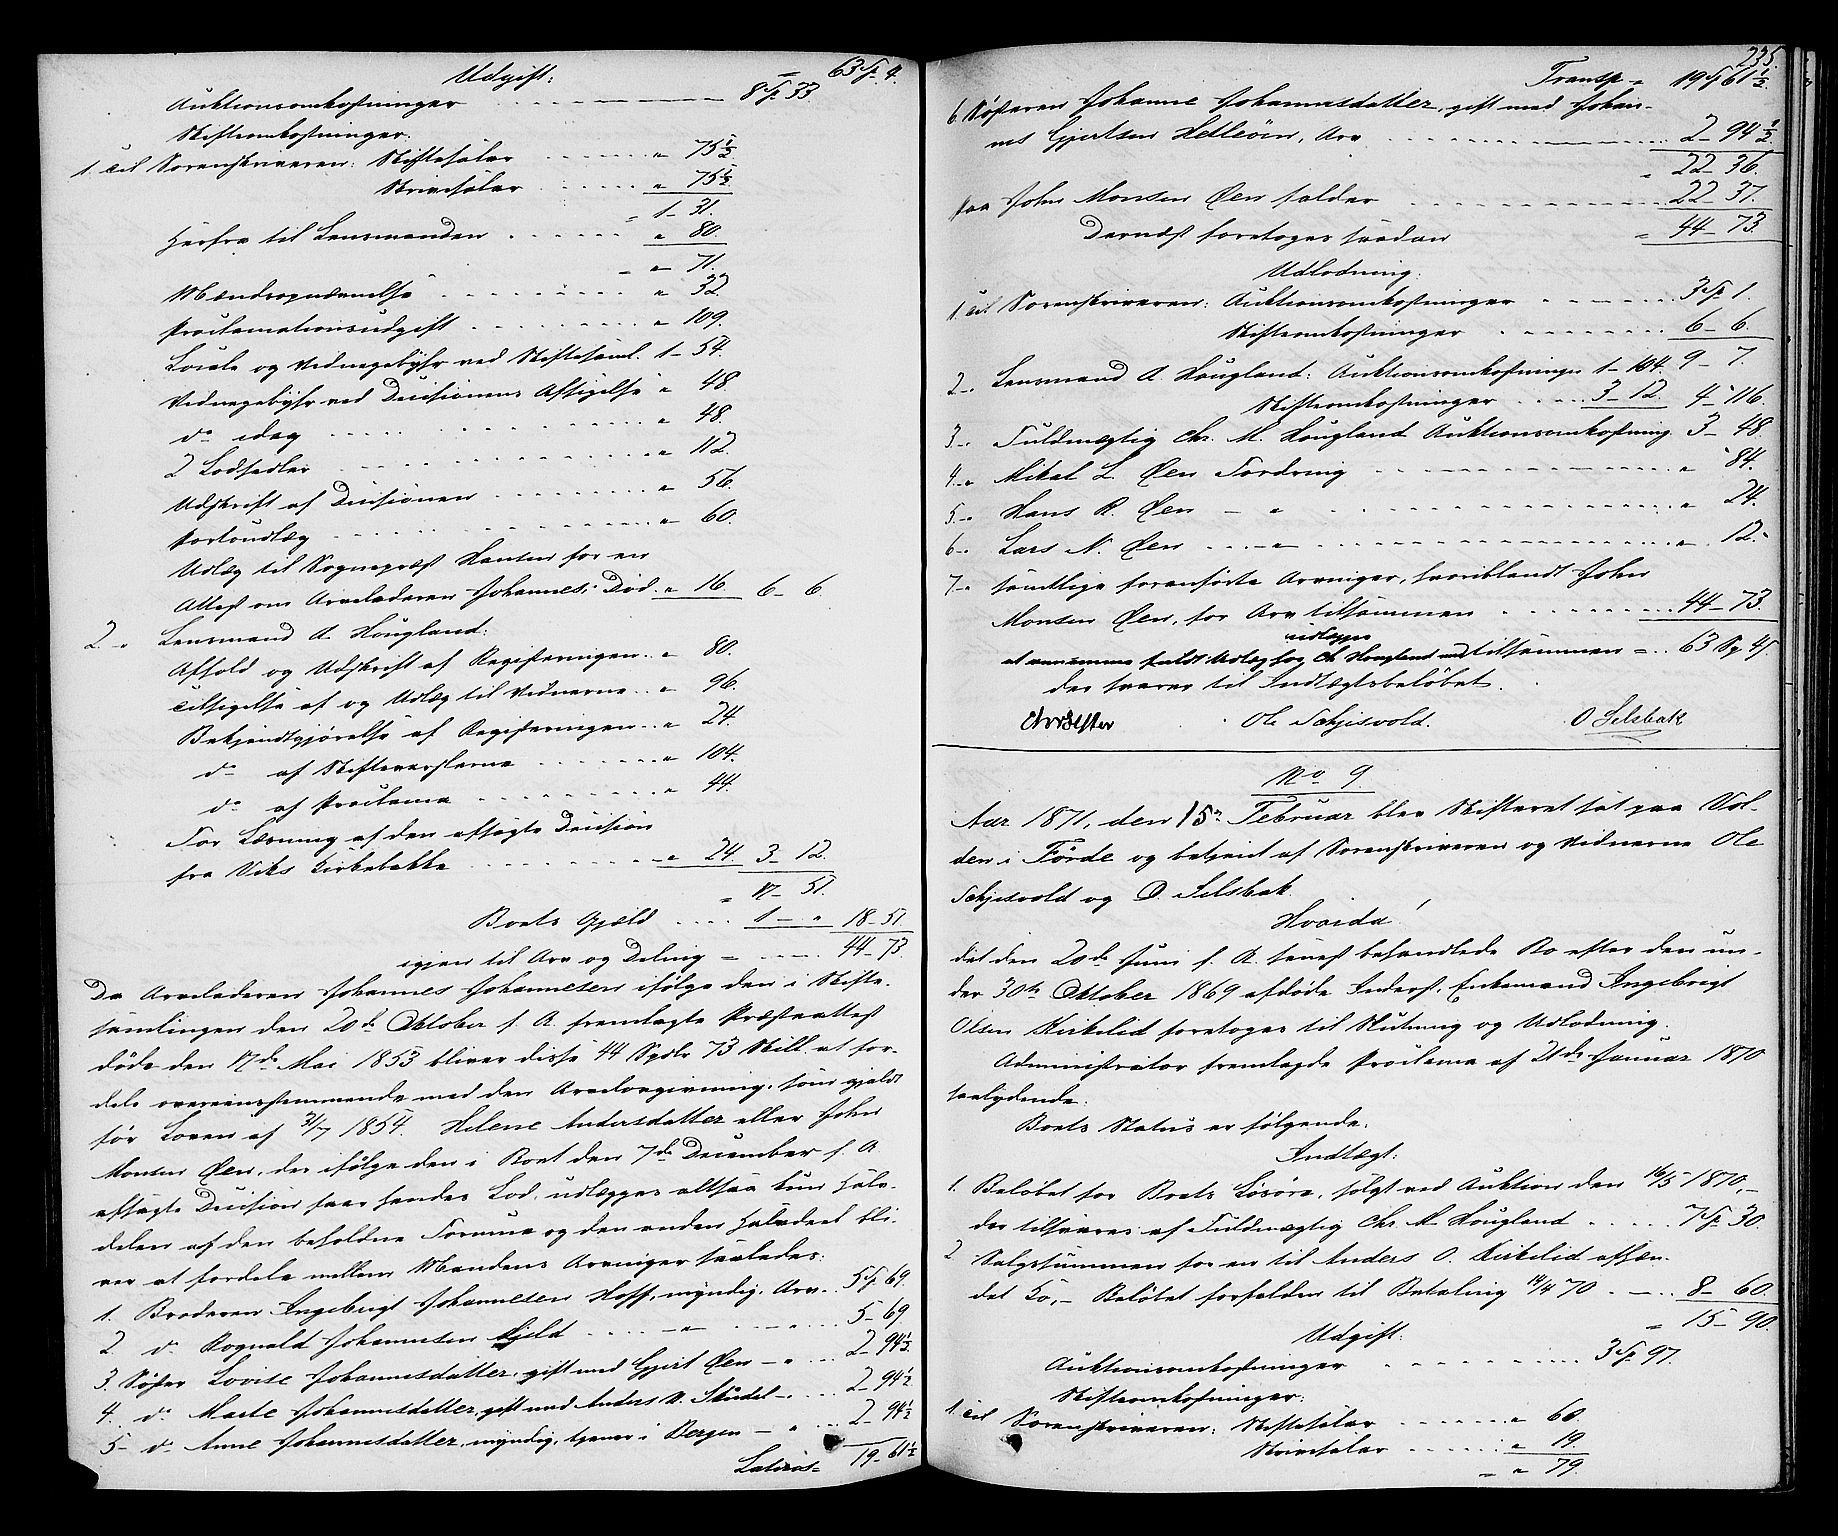 = 63 Sp. 4.
Udgift:
Auktionsomkostninger 8 Sp. 33
Skifteomkostninger:
1. Til Sorenskriveren: Skiftesalær " 75½
Skrivesalær " 75½
= 1 - 31.
Herfra til Lensmanden " 80.
= " 71.
Mændsopnævnelse " 32
Proclamationsudgift " 109.
Locale og Vidnegebyhr ved Skiftesaml. 1 - 54.
Vidnegebyhr ved Decisionens Afsigelse " 48
do idag " 48.
2 Lodsedler " 112.
Udskrift af Decisionen " 56.
Portoudlæg " 60.
Udlæg til Sognepræst Hansen for en
Attest om Arveladeren Johannes's Død " 16. 6 - 6.
2 " Lensmand A. Hougland:
Afhold og Udskrift af Registeringen " 80.
Tilsigelse af og Udlæg til Vidnerne " 96.
Bekjendtgjørelse af Registeringen " 24.
do af Skifteværslerne " 104.
do af Proclama " 44.
For Læsning af den afsagte Decision
fra Viks Kirkebakke " 24. 3 - 12.
= 17 - 51.
Boets Gjæld 1 - " 18 - 51
igjen til Arv og Deling = 44 - 73.
Da Arveladeren Johannes Johannesen ifølge den i Skifte-
samlingen den 20de Oktober f. A. fremlagte Præsteattest
døde den 17de Mai 1853 bliver disse 44 Spdlr 73 Skill. at for-
dele overensstemmende med den Arvelovgivning, som gjaldt
før Loven af 31/7 1854. Helene Andersdatter eller John
Monsen Øen, der ifølge den i Boet den 7de December f. A.
afsagte Decision faar hendes Lod, udlægges altsaa kun Halv-
delen af den beholdne Formue og den anden Halvdeel bli-
ver at fordele mellem Mandens Arvinger saaledes:
1. Broderen Ingebrigt Johannesen Hoff, myndig, Arv 5 Sp. 69.
2 do Rognald Johannesen Hjeld " 5 - 69
3. Søster Lovise Johannesdatter, gift med Gjert Øen " 2 - 94½
4. do Marte Johannesdatter, gift med Anders N. Skudal " 2 - 94½
5 - do Anne Johannesdatter, myndig, tjener i Bergen " 2 - 94½
Lateris = 19 - 61½
235.
Transp = 19 Sp 61½.
6. Søsteren Johanne Johannesdatter, gift med Johan-
nes Gjertsen Hetleøen, Arv 2 - 94½.
= 22 - 36.
Paa John Monsen Øen falder 22 - 37.
Dernæst foretoges saadan = 44 - 73.
Udlodning:
1. Til Sorenskriveren: Auktionsomkostninger 3 Sp. 1.
Skifteomkostninger 6 - 6.
9 - 7.
2 - " Lensmand A. Hougland: Auktionsomkostninger 1 - 104.
Skifteomkostninger 3 - 12. 4 - 116.
3 - " Fuldmægtig Chr. M. Hougland Auktionsomkostning. 3 - 48.
4 - " Mikal L. Øen Fordring " 84.
5 - " Hans R. Øen - " " 24.
6 - " Lars N. Øen - " " 12.
7 - " samtlige foranførte Arvinger, hvoriblandt John
Monsen Øen, for Arv tilsammen 44 - 73.
tilsammen = 63 Sp 4
der svarer til Indtægtsbeløbet.
Ole Schjesvold. O Selsbak
No 9.
Aar 1871, den 15de Februar blev Skifteret sat paa Vol-
den i Førde og betjent af Sorenskriveren og Vidnerne Ole
Schjesvold og O. Selsbak.
Hvorda!
det den 20de Juni f. A. senest behandlede Bo efter den un-
der 30te Oktober 1869 afdøde Inderst, Enkemand Ingebrigt
Olsen Kirkelid foretoges til Slutning og Udlodning.
Administrator fremlagde Proclama af 21de Januar 1870
saalydende.
Boets Status er følgende:
Indtægt:
1. Beløbet for Boets Løsøre, solgt ved Auktion den 16/5 1870,
der tilsvares af Fuldmægtig Chr. M. Hougland 7 Sp. 30.
2. Salgssummen for en til Anders O. Kirkelid afhæn-
det Ko, - Beløbet forfalden til Betaling 14/4 70 8 - 60.
= 15 - 90.
Udgift:
Auktionsomkostninger 3 Sp. 97.
Skifteomkostninger:
1. Til Sorenskriveren: Skiftesalær " 60.
Skrivesalær " 19.
= " 79.